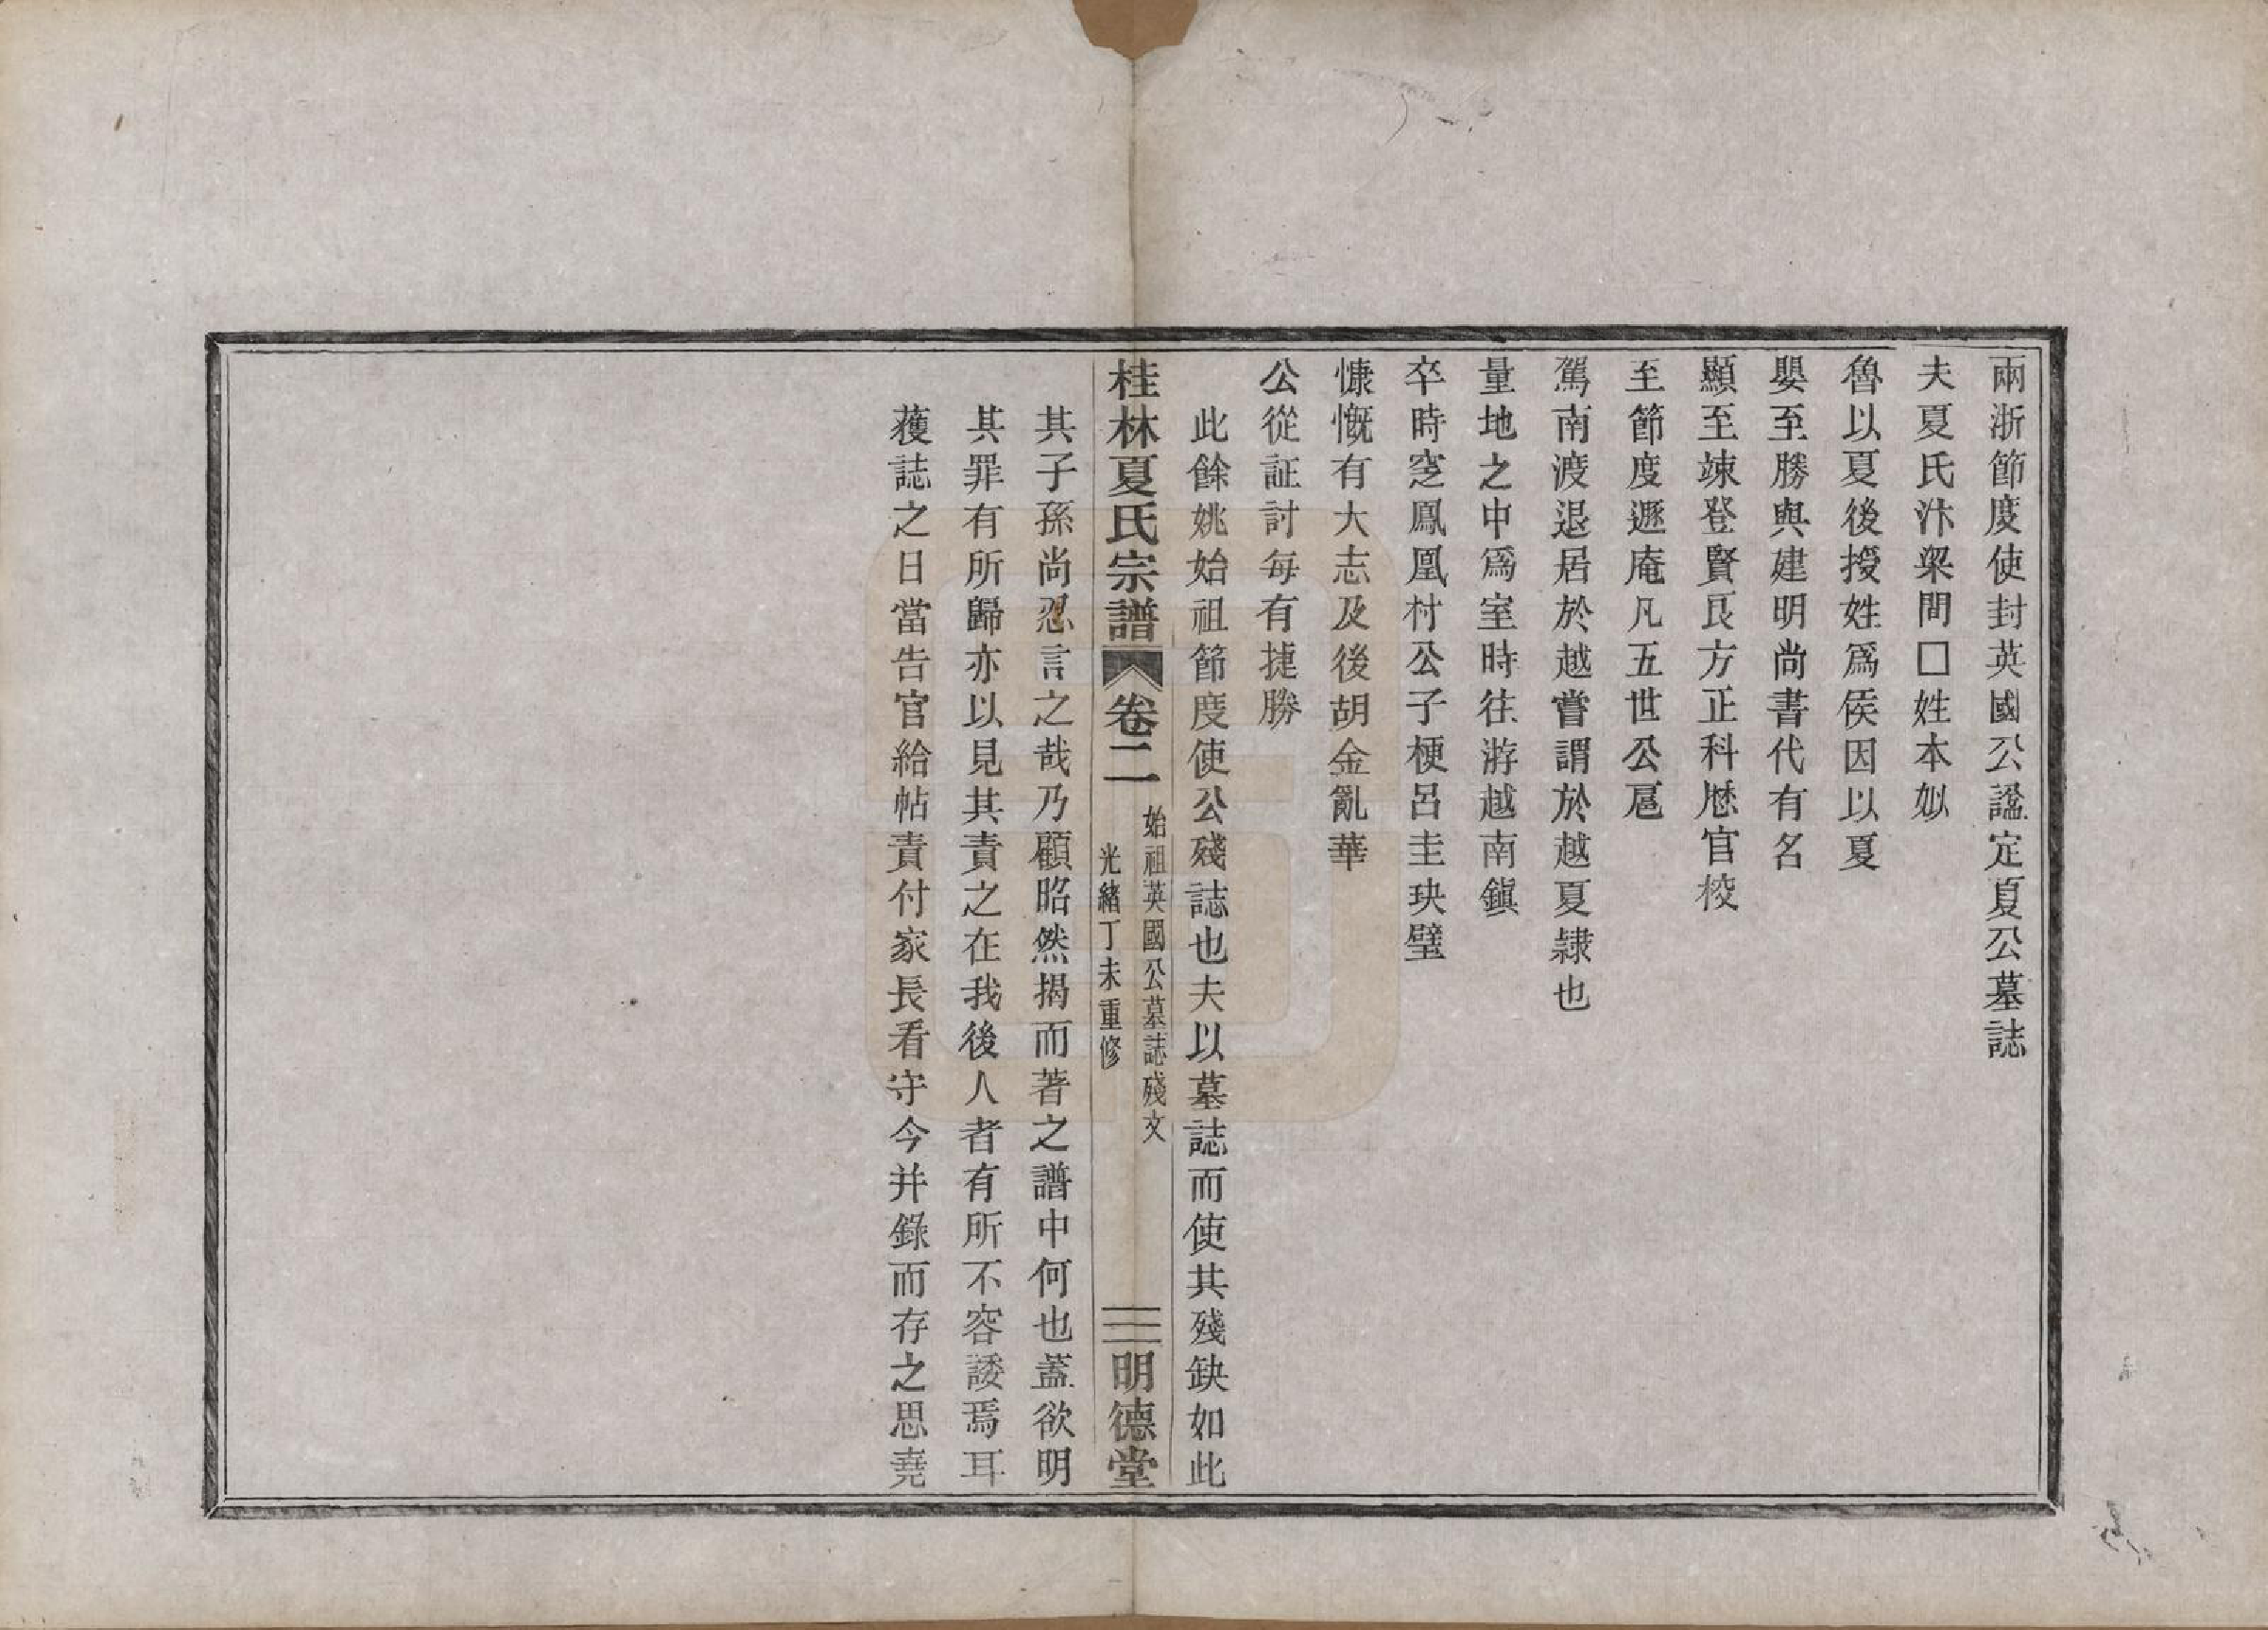 兩浙節度使封英國公諡定夏公墓誌
夫夏氏汴梁間□姓本姒
魯以夏後授姓爲侯因以夏
嬰至勝與建明尚書代有名
顯至竦登賢良方正科歷官校
至節度遯庵凡五世公扈
駕南渡退居於越嘗謂於越夏隸也
量地之中爲室時往游越南鎭
卒時窆鳳凰村公子梗呂圭玦璧
慷慨有大志及後胡金亂華
公從証討每有捷勝
此餘姚始祖節度使公殘誌也夫以墓誌而使其殘缺如此
桂林夏氏宗譜 卷二 始祖英國公墓誌殘文 光緒丁未重修 三 明德堂
其子孫尚忍言之哉乃顧昭然揭而著之譜中何也蓋欲明
其罪有所歸亦以見其責之在我後人者有所不容諉焉耳
蒦誌之日當告官給帖責付家長看守今并錄而存之思堯